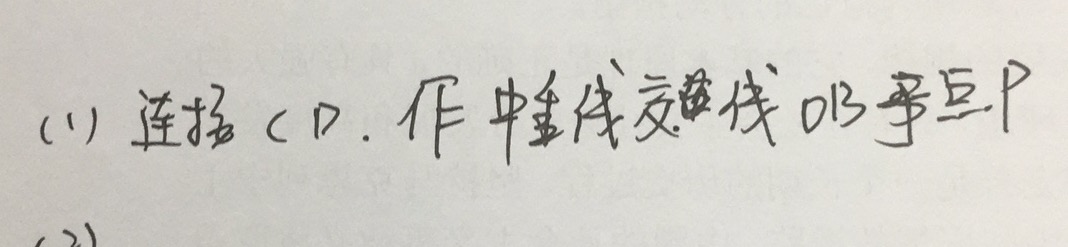 (1) 连接CD. 作中垂线交直线OB于点P
(2)